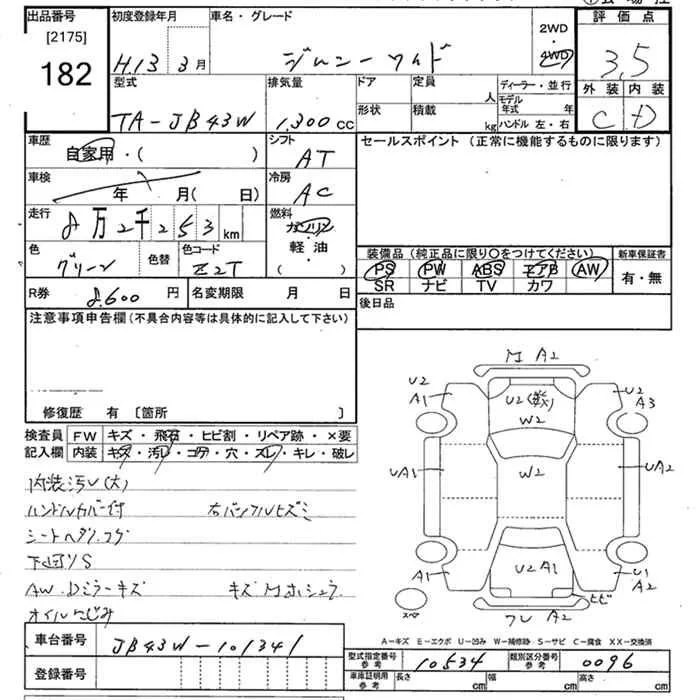 出品番号 初度登録年月 車名・グレード 評価点
[2175]
182
H.13 3月 ジムニーワイド 2WD
4WD
3.5
外装 内装
C D
型式 排気量 ドア 定員 人 ディーラー・並行
TA-JB43W 1,300cc 形状 積載 kg モデル年式 年
ハンドル 左・右
車歴 自家用・( ) シフト AT セールスポイント (正常に機能するものに限ります)
車検 年 月( 日) 冷房 AC
走行 8万2千253km 燃料 ガソリン
軽・油
( )
色 グリーン 色替 色コード Z2T
装備品 (純正品に限り〇をつけてください) 新車保証書
PS PW ABS エアB AW 有・無
SR ナビ TV カワ
R券 8,600円 名変期限 月 日 後日品
注意事項申告欄 (不具合内容等は具体的に記入して下さい)
修復歴 有 〔箇所 〕
検査員 FW キズ・飛石・ヒビ割・リペア跡・×要
記入欄 内装 キズ・汚レ・コゲ・穴・スレ・キレ・破レ
内装汚レ(大)
ハンドルカバー付 右バックルヒズミ
シートヘタリ
下回りS
AW.Dミラーキズ
オイルにじみ
M A2
U2 A1
U2
W2
U2 A3
UA1 W2 UA2
A1 U2A1 U1 A2
スペア ヒビ
フレ A2
A-キズ E-エクボ U-凹み W-補修跡 S-サビ C-腐食 XX-交換済
車台番号 JB43W-101341
登録番号
型式指定番号 参考 10534 類別区分番号 参考 0096
車庫証明用 参考 長さ cm 幅 cm 高さ cm